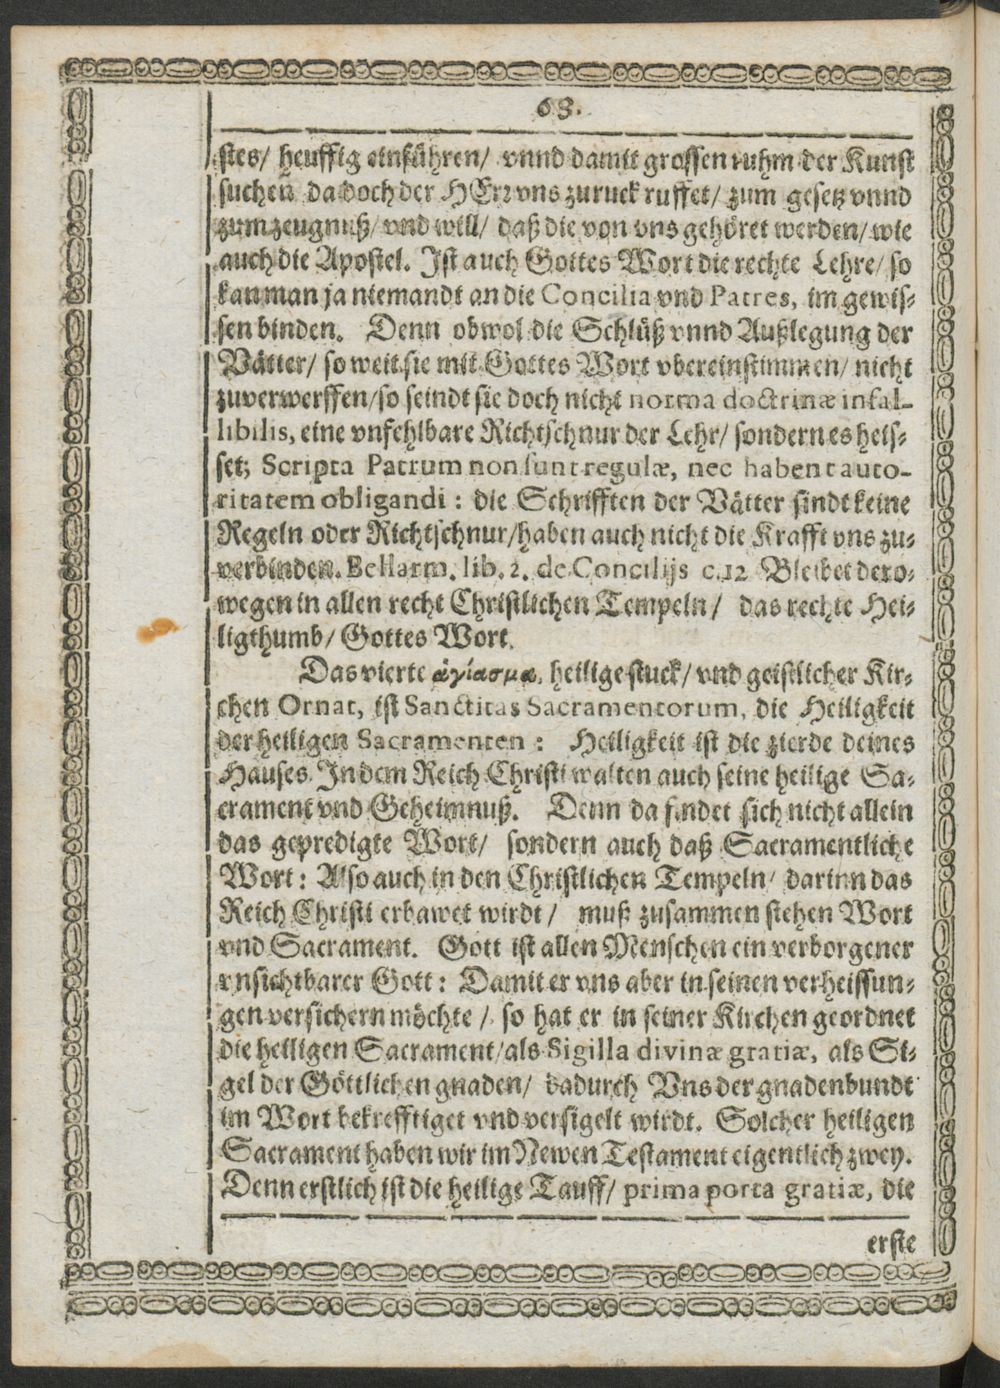 68.
stes/ heuffig einführen/ vnnd damit grossen ruhm der Kunst
suchen da doch der HErr vns zuruck ruffet/ zum gesetz vnnd
zum zeugnuß/ vnd will/ daß die von vns gehöret werden/ wie
auch die Apostel. Ist auch Gottes Wort die rechte Lehre/ so
kan man ja niemandt an die Concilia vnd Patres, im gewis-
sen binden. Denn obwol die Schlüß vnnd Außlegung der
Vätter/ so weit sie mit Gottes Wort vbereinstimmen/ nicht
zuverwerffen/ so seindt sie doch nicht norma doctrinæ infal-
libilis, eine vnfehlbare Richtschnur der Lehr/ sondern es heis-
set; Scripta Patrum non sunt regulæ, nec habent auto-
ritatem obligandi : die Schrifften der Vätter sindt keine
Regeln oder Richtschnur/ haben auch nicht die Krafft vns zu-
verbinden. Bellarm. lib. 2. de Concilijs c. 12 Bleibet dero-
wegen in allen recht Christlichen Tempeln/ das rechte Hei-
ligthumb/ Gottes Wort.
Das vierte ἁγίασμα, heilige stuck/ vnd geistlicher Kir-
chen Ornat, ist Sanctitas Sacramentorum, die Heiligkeit
der heiligen Sacramenten : Heiligkeit ist die zierde deines
Hauses. In dem Reich Christi walten auch seine heilige Sa-
crament vnd Geheimnuß. Denn da findet sich nicht allein
das gepredigte Wort/ sondern auch daß Sacramentliche
Wort : Also auch in den Christlichen Tempeln/ darinn das
Reich Christi erbawet wirdt/ muß zusammen stehen Wort
vnd Sacrament. Gott ist allen Menschen ein verborgener
vnsichtbarer Gott : Damit er vns aber in seinen verheissun-
gen versichern möchte/ so hat er in seiner Kirchen geordnet
die heiligen Sacrament/ als Sigilla divinæ gratiæ, als Si-
gel der Göttlichen gnaden/ dadurch Vns der gnadenbundt
im Wort bekrefftiget vnd versigelt wirdt. Solcher heiligen
Sacrament haben wir im Newen Testament eigentlich zwey.
Denn erstlich ist die heilige Tauff/ prima porta gratiæ, die
erste